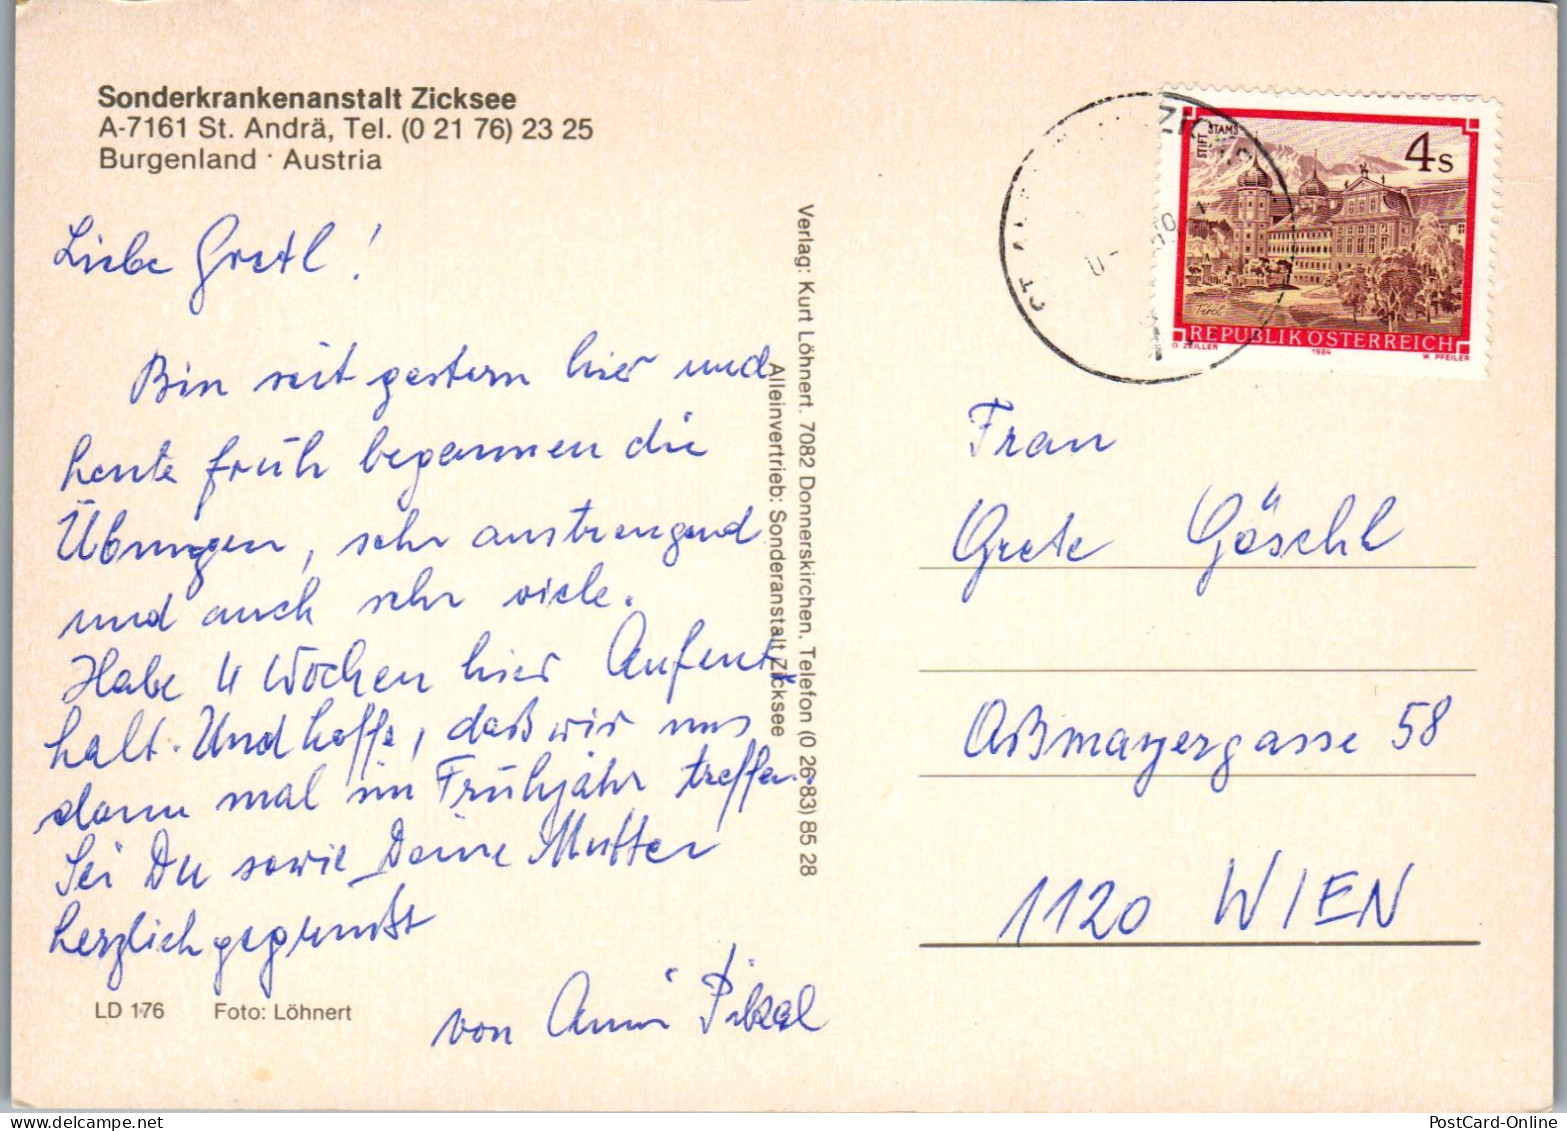 Sonderkrankenanstalt Zicksee
A-7161 St. Andrä, Tel. (0 21 76) 23 25
Burgenland · Austria
Liebe Gretl!
Bin seit gestern hier und
heute früh begannen die
Übungen, sehr anstrengend
und auch sehr viele.
Habe 4 Wochen hier Aufent-
halt. Und hoffe, daß wir uns
dann mal im Frühjahr treffen.
Sei Du sowie Deine Mutter
herzlich gegrüßt
von Anni Pikal
LD 176 Foto: Löhnert
Verlag: Kurt Löhnert. 7082 Donnerskirchen. Telefon (0 26 83) 85 28
Alleinvertrieb: Sonderanstalt Zicksee
STIFT STAMS
4 S
Tirol
REPUBLIK ÖSTERREICH
O. ZEILLER 1984 W. PFEILER
Frau
Grete Göschl
Aßmayergasse 58
1120 WIEN
PostCard-Online